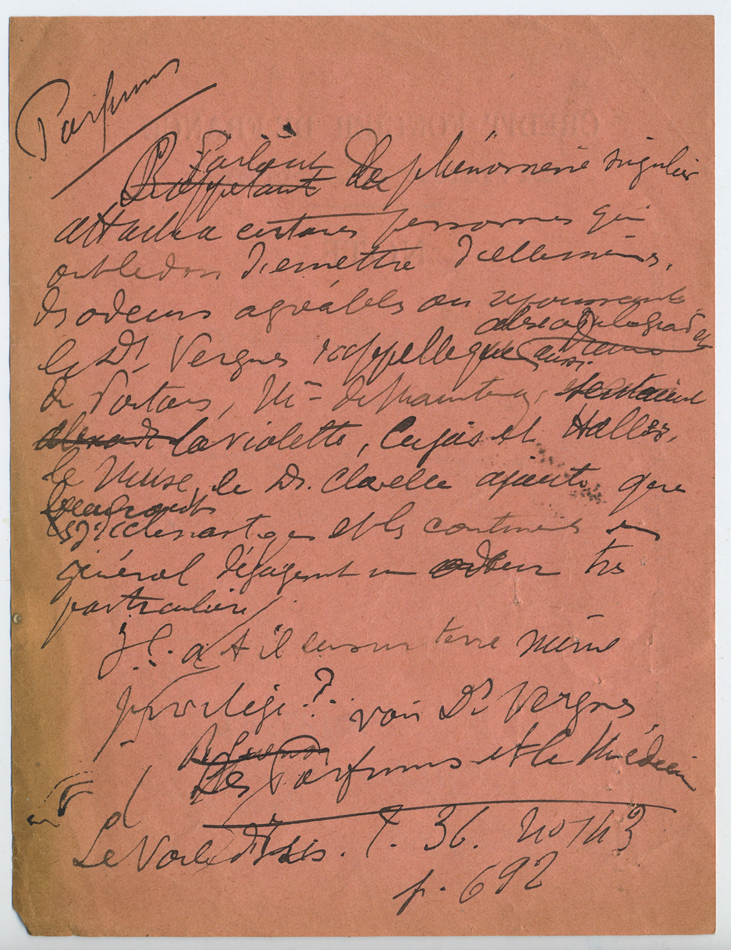 Parfums
Parlant
Rappelant de phénomène singulier
attaché a certaines personnes qui
ont le don d'emettre d'ellesmêmes,
des odeurs agréables ou repoussantes
le Dr. Vergnes rappelle que
de Poitiers, Mme de Maintenon, sentaient
la violette, Cujas et Haller,
le Musc, le Dr. Clavelle ajoute que
les et les continents en
général dégagent un odeur très
particulière
Y a t il eu sur terre même
privilège ? voir Dr Vergnes
Les Parfums et le Médecin
Le Voile d'Isis. T. 36. no 143
p. 692